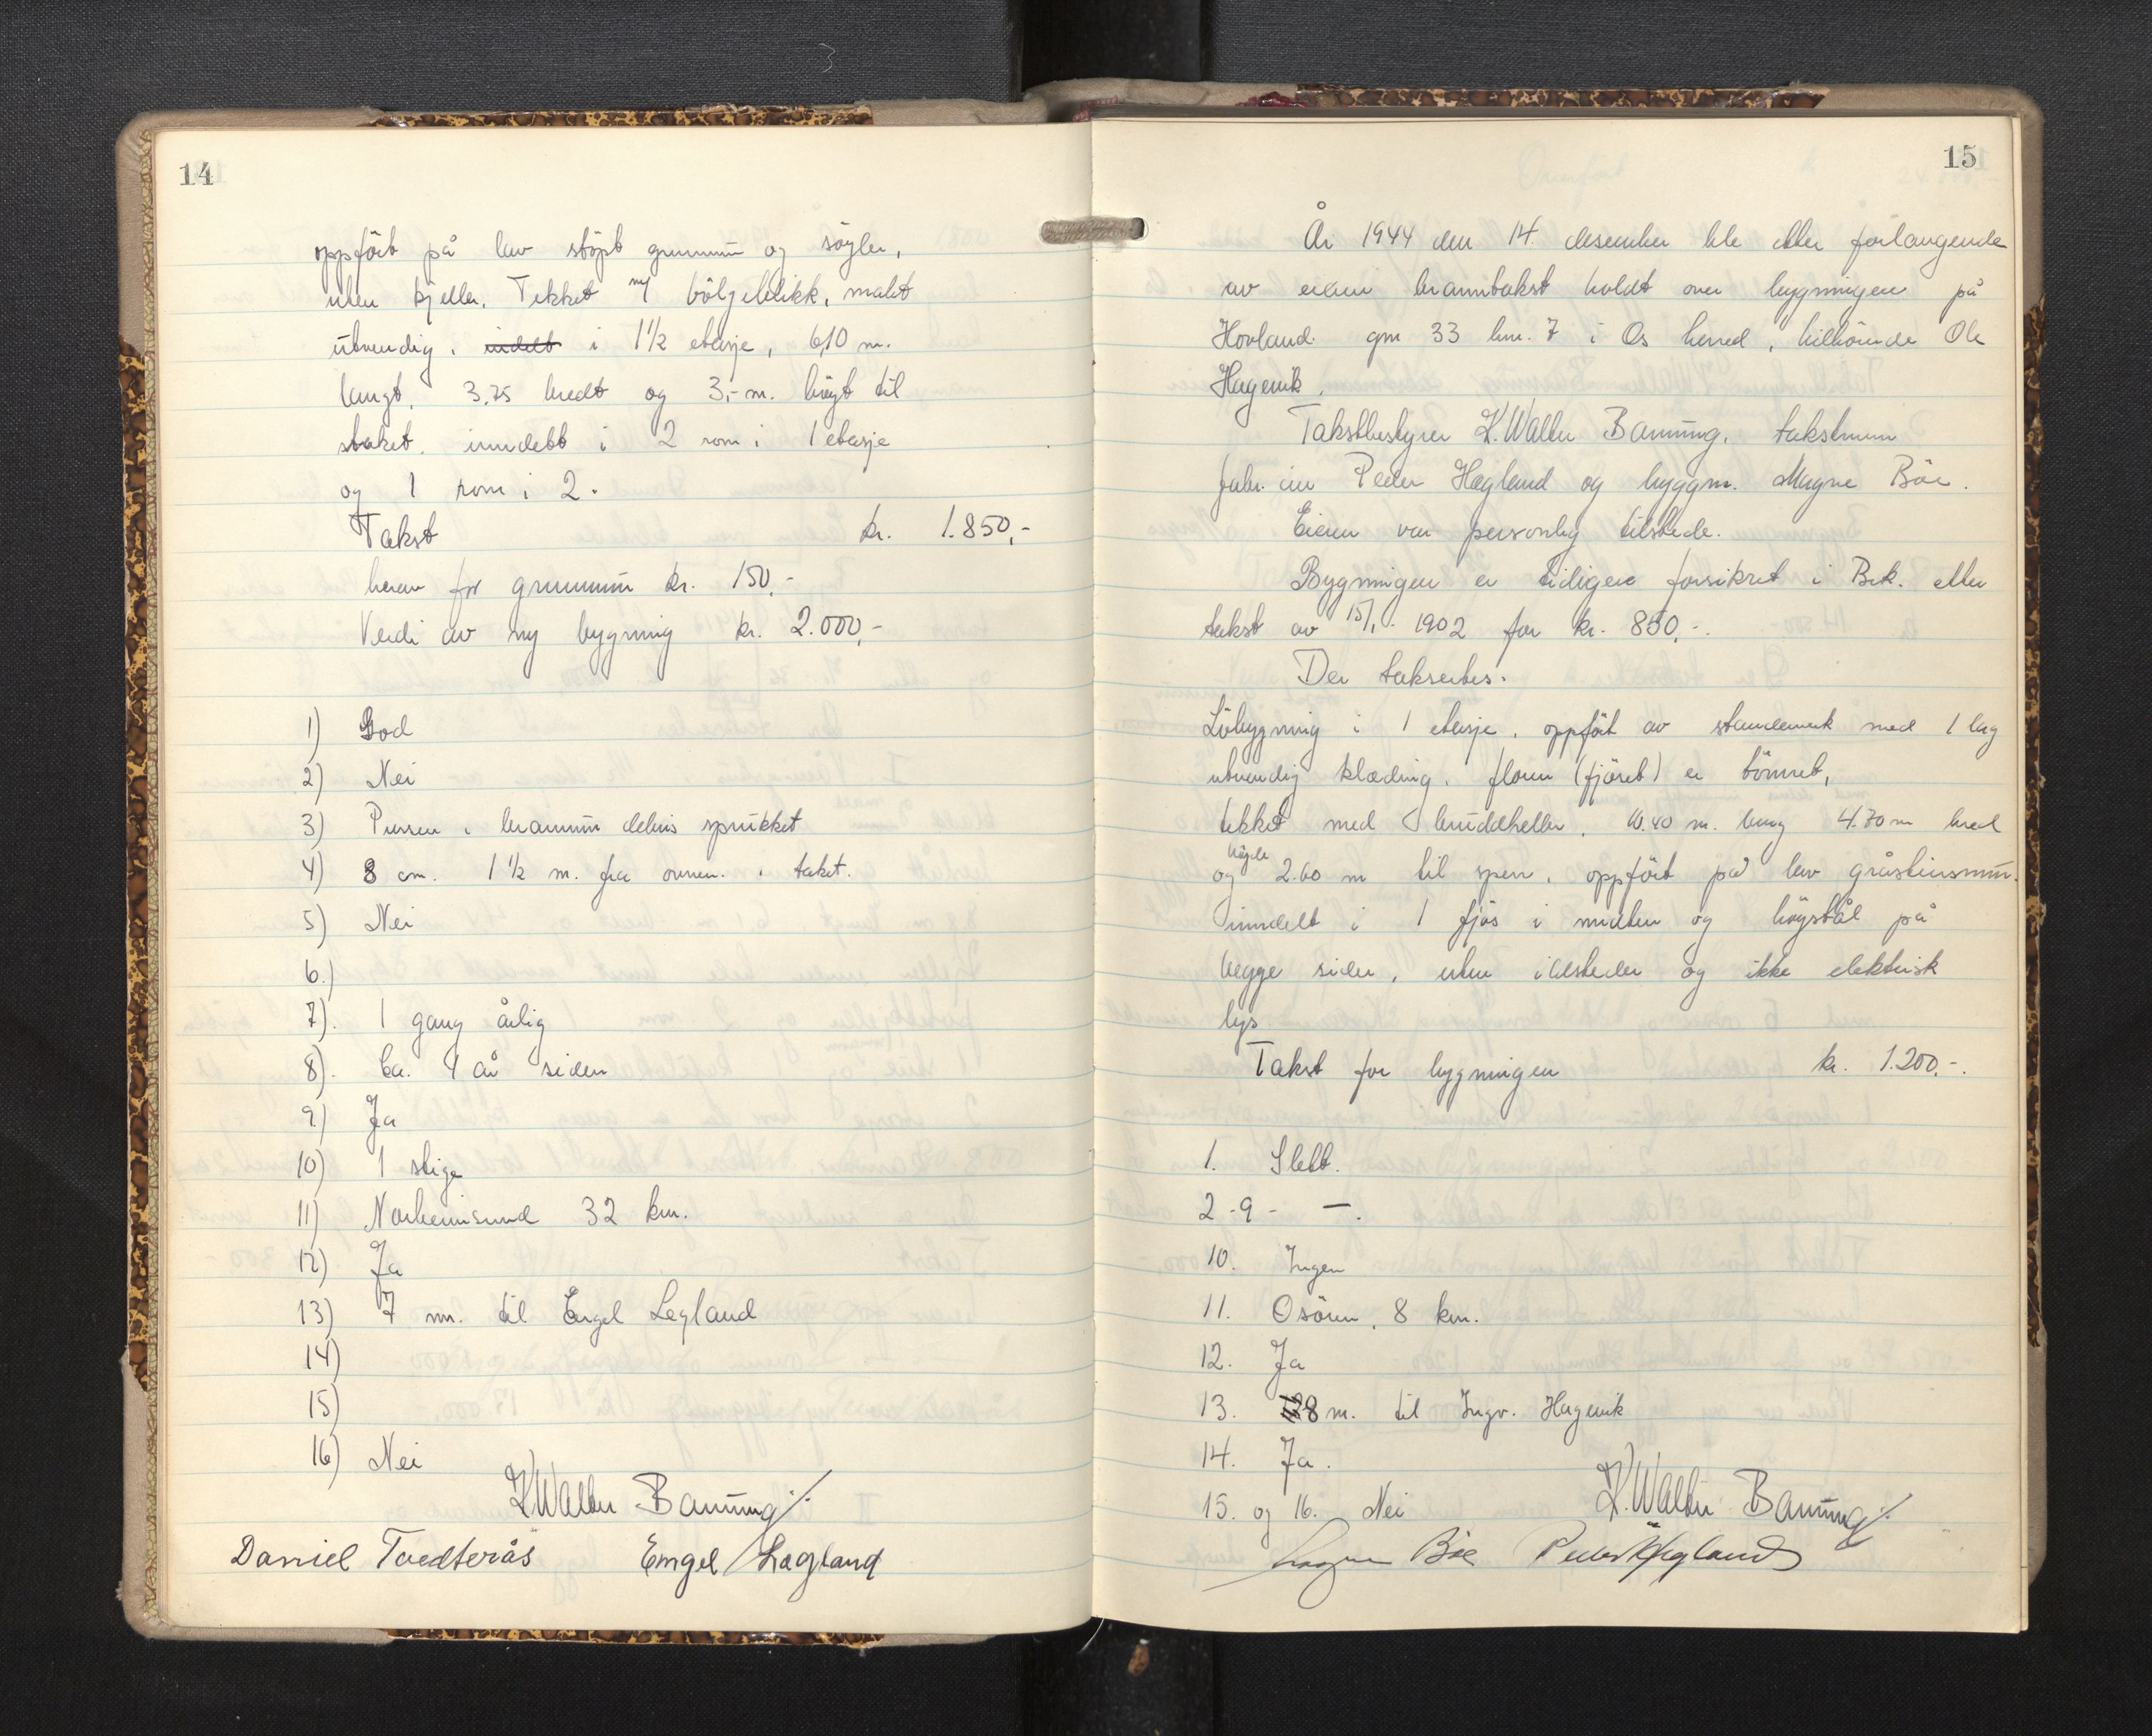 14
oppført på lav støpt grunnmur og søyler,
uten kjeller. Tekket m/ bølgeblikk, malt
utvendig. indelt i 1 1/2 etasje, 6,10 m.
langt, 3,75 bredt og 3,- m. høyt til
taket. inndelt i 2 rom i 1 etasje
og 1 rom i 2.
Takst kr. 1.850,-
herav for grunnmur kr. 150,-
Verdi av ny bygning kr. 2.000,-
1) God
2) Nei
3) Pussen i brannmur delvis sprukket
4) 8 cm. 1 1/2 m. fra ovnen. i taket.
5) Nei
6.)
7). 1 gang årlig
8). Ca. 4 år siden
9) Ja
10) 1 stige
11) Norheimsund 32 km.
12) Ja
13) 7 m. til Engel Legland
14)
15)
16) Nei
K. Walter Banning
Daniel Tvedterås Engel Lægland
15
År 1944 den 14 desember ble etter forlangende
av eieren branntakst holdt over bygningen på
Hovland gnr 33 bnr. 7 i Os herred, tilhørende Ole
Hagevik.
Takstbestyrer K. Walter Banning. takstmenn
fabr. eier Peder Hegland og byggm. Magne Bøe.
Eieren var personlig tilstede.
Bygningen er tidligere forsikret i Brk. etter
takst av 15/1 1902 for kr. 850,-.
Der takseertes.
Løbygning i 1 etasje, oppført av standerverk med 1 lag
utvendig klædning. floren (fjøset) er tømret,
tekket med bruddheller, 10.40 m. lang 4.70 m bred
og høyde 2.60 m til sperr, oppført på lav gråsteinsmur.
inndelt i 1 fjøs i midten og høystål på
begge sider, uten ildsteder og ikke elektrisk
lys.
Takst for bygningen kr. 1.200.-.
1. Slett.
2-9- —.
10. Ingen
11. Osøren, 8 km.
12. Ja
13. 8 m. til Ingv. Hagevik
14. Ja.
15. og 16. Nei K. Walter Banning
Magne Bøe Peder Hegland